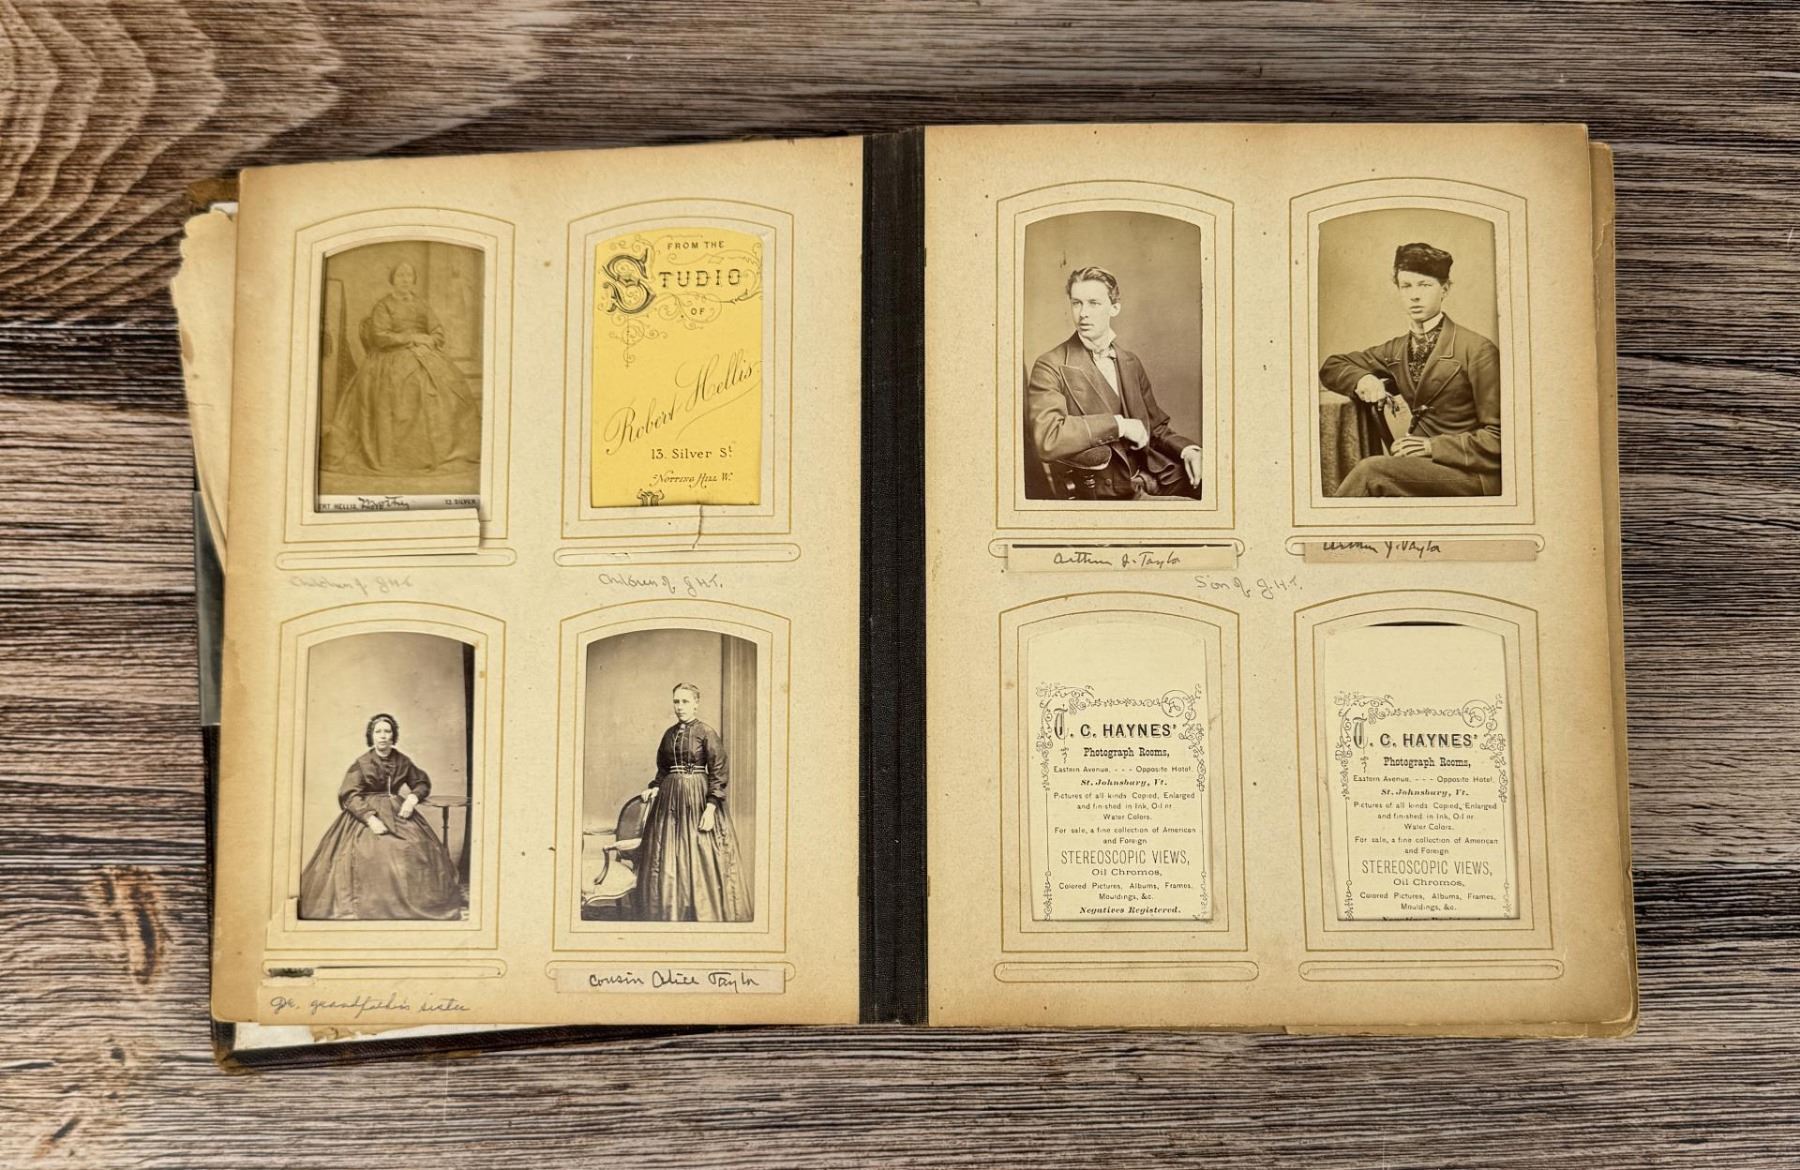 FROM THE
STUDIO
OF
Robert Hellis
13. Silver St.
Notting Hill W.
RT HELLIS, Mother 13 SILVER
Children of J.H.T.
Children of J.H.T.
Gr. grandfather's sister
Cousin Alice Taylor
Arthur J. Taylor
Arthur J. Taylor
Son of J.H.T.
T. C. HAYNES'
Photograph Rooms,
Eastern Avenue, - - - Opposite Hotel,
St. Johnsbury, Vt.
Pictures of all kinds Copied, Enlarged
and finished in Ink, Oil or
Water Colors.
For sale, a fine collection of American
and Foreign
STEREOSCOPIC VIEWS,
Oil Chromos,
Colored Pictures, Albums, Frames,
Mouldings, &c.
Negatives Registered.
T. C. HAYNES'
Photograph Rooms,
Eastern Avenue, - - - Opposite Hotel,
St. Johnsbury, Vt.
Pictures of all kinds Copied, Enlarged
and finished in Ink, Oil or
Water Colors.
For sale, a fine collection of American
and Foreign
STEREOSCOPIC VIEWS,
Oil Chromos,
Colored Pictures, Albums, Frames,
Mouldings, &c.